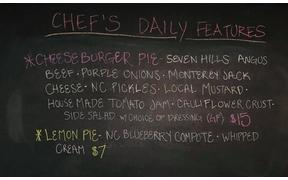 CHEF'S DAILY FEATURES
*CHEESEBURGER PIE- SEVEN HILLS ANGUS
BEEF · PURPLE ONIONS · MONTEREY JACK
CHEESE · NC PICKLES · LOCAL MUSTARD ·
HOUSE MADE TOMATO JAM · CAULIFLOWER CRUST ·
SIDE SALAD W/ CHOICE OF DRESSING (GF) $15
*LEMON PIE- NC BLUEBERRY COMPOTE · WHIPPED
CREAM $7